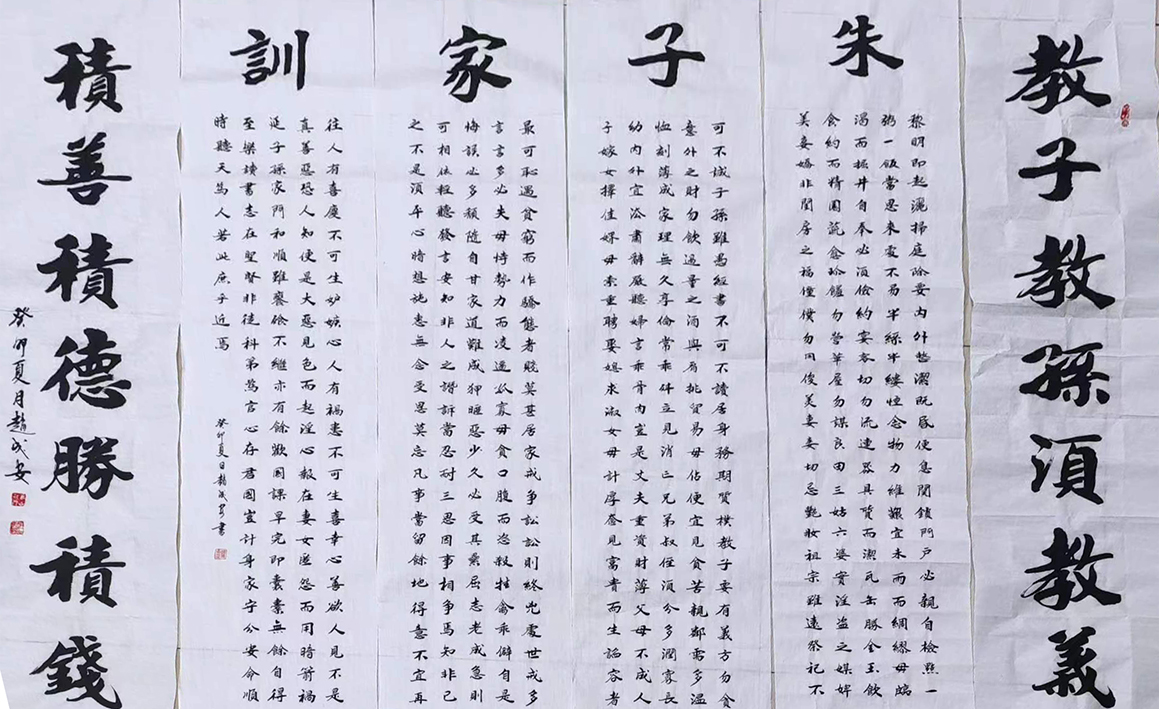 教子教孫須教義
朱子家訓
黎明即起灑掃庭除要內外整潔既昏便息關鎖門戶必親自檢點一
粥一飯當思來處不易半絲半縷恆念物力維艱宜未雨而綢繆毋臨
渴而掘井自奉必須儉約宴客切勿流連器具質而潔瓦缶勝金玉飲
食約而精園蔬愈珍饈勿營華屋勿謀良田三姑六婆實淫盜之媒婢
美妾嬌非閨房之福僮僕勿用俊美妻妾切忌艷妝祖宗雖遠祭祀不
可不誠子孫雖愚經書不可不讀居身務期質樸教子要有義方勿貪
意外之財勿飲過量之酒與肩挑貿易毋佔便宜見貧苦親鄰需多溫
恤刻薄成家理無久享倫常乖舛立見消亡兄弟叔侄須分多潤寡長
幼內外宜法肅辭嚴聽婦言乖骨肉豈是丈夫重資財薄父母不成人
子嫁女擇佳婿毋索重聘娶媳求淑女毋計厚奩見富貴而生諂容者
最可恥遇貧窮而作驕態者賤莫甚居家戒爭訟訟則終凶處世戒多
言言多必失毋恃勢力而凌逼孤寡毋貪口腹而恣殺牲禽乖僻自是
悔誤必多頹隨自甘家道難成狎暱惡少久必受其累屈志老成急則
可相依輕聽發言安知非人之譖訴當忍耐三思因事相爭焉知非己
之不是須平心時想施惠無念受恩莫忘凡事當留餘地得意不宜再
往人有喜慶不可生妒嫉心人有禍患不可生喜幸心善欲人見不是
真善惡恐人知便是大惡見色而起淫心報在妻女匿怨而用暗箭禍
延子孫家門和順雖饔飧不繼亦有餘歡國課早完即囊橐無餘自得
至樂讀書志在聖賢非徒科第為官心存君國豈計身家守分安命順
時聽天為人若此庶乎近焉
癸卯夏日趙成安書
積善積德勝積錢
癸卯夏月趙成安